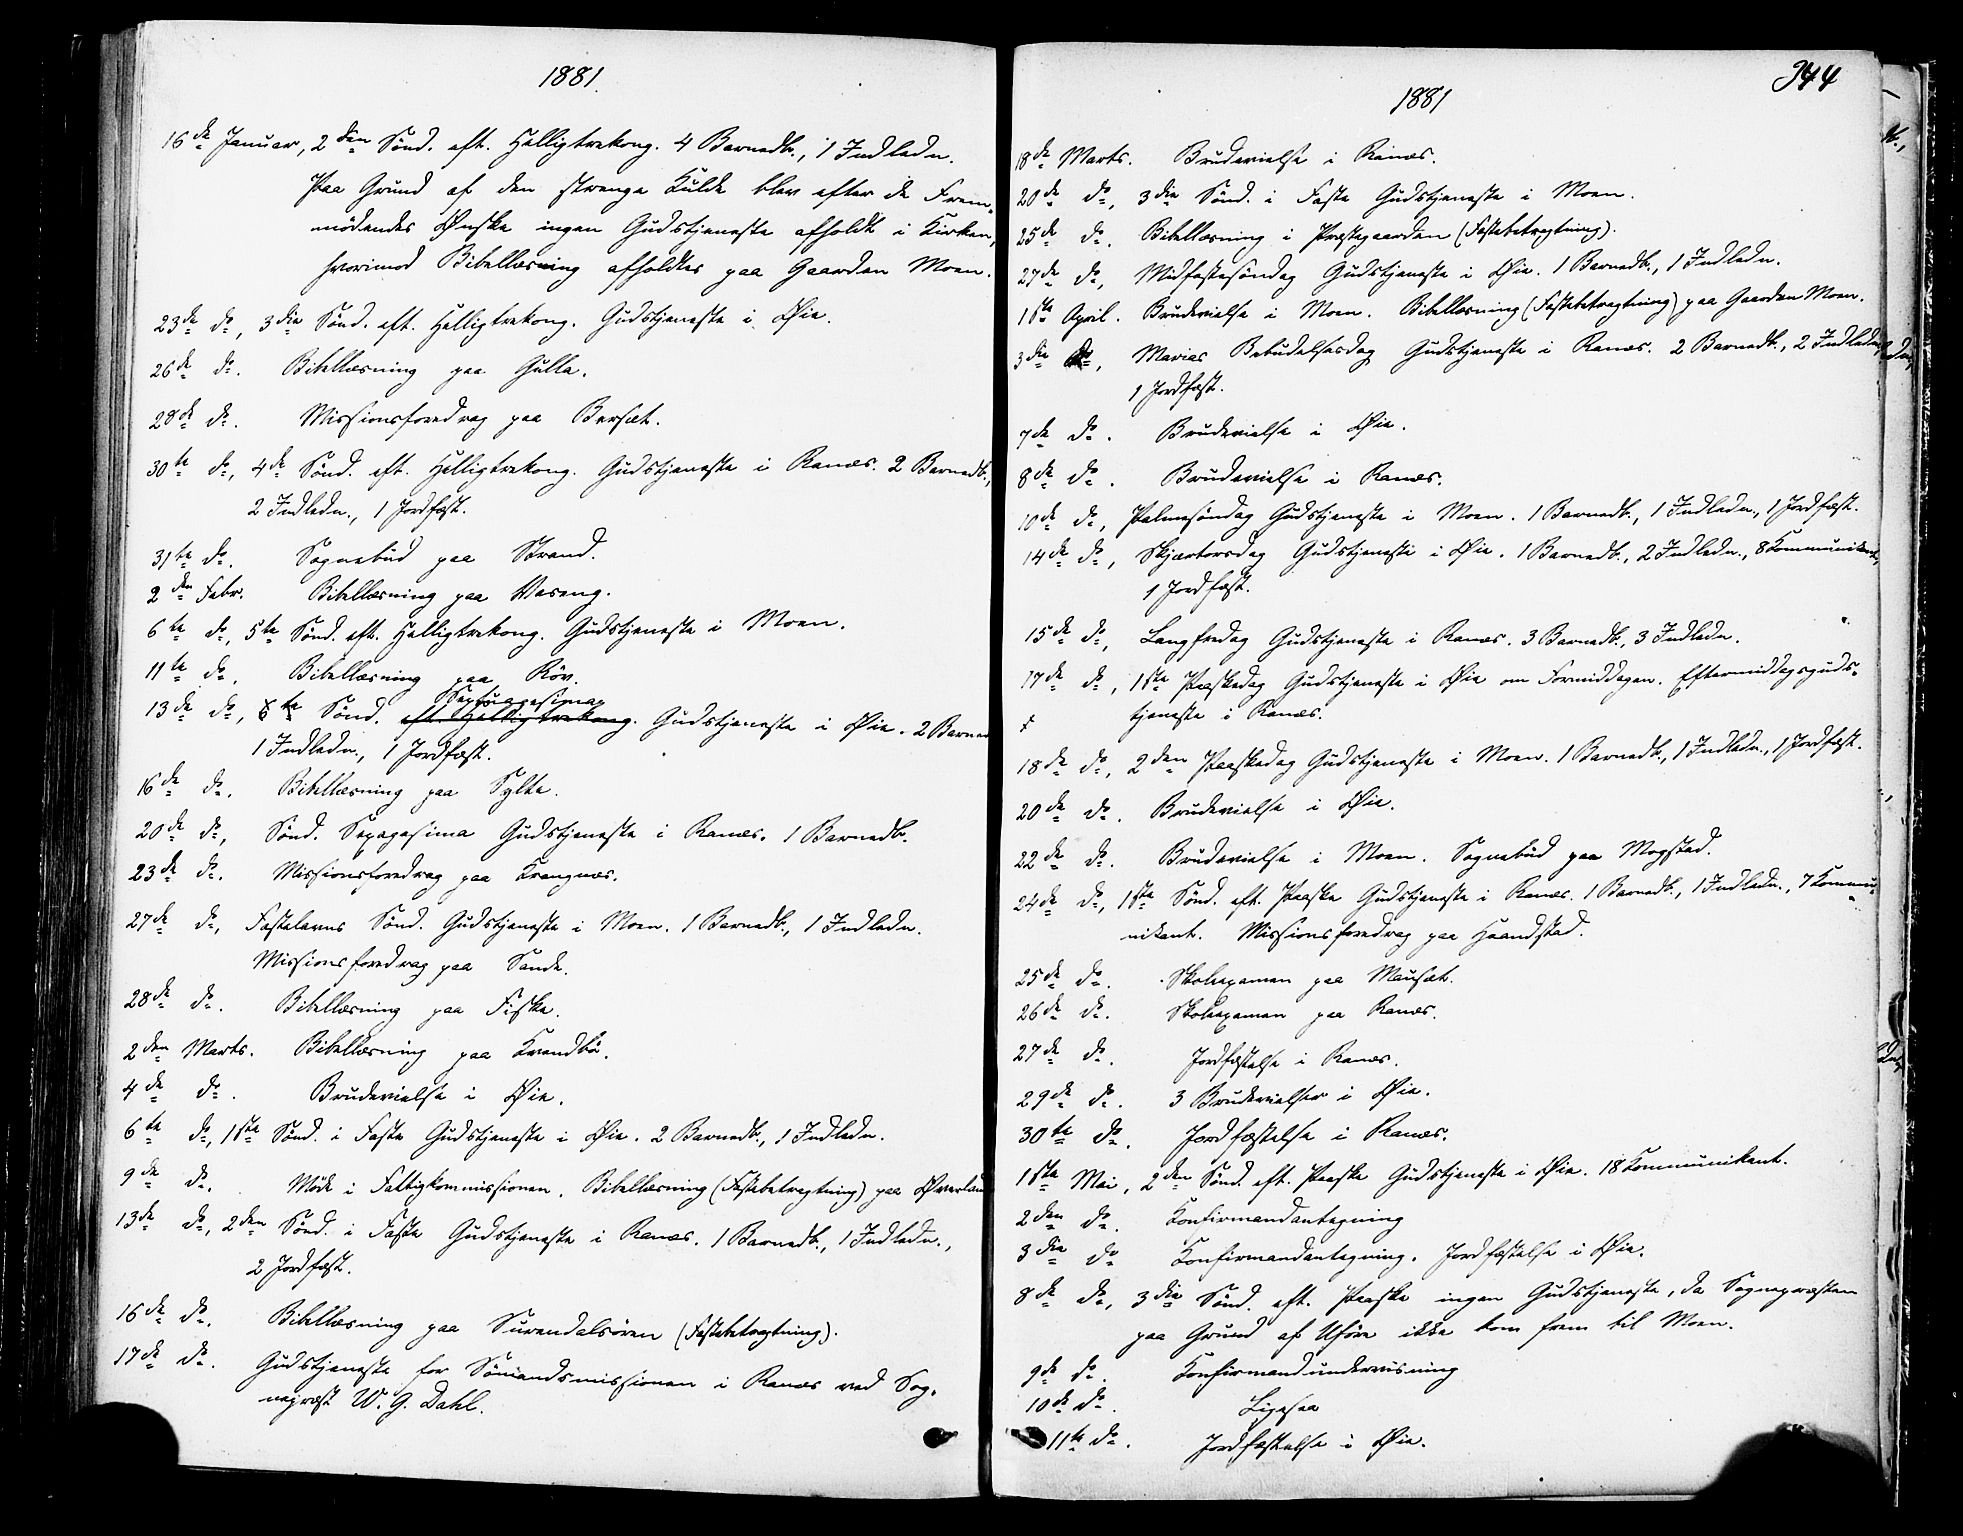 1881.
16de Januar, 2den Sönd. eft. Helligtrekong. 4 Barnedb., 1 Indledn.
Paa Grund af den strenge Kulde blev efter de Frem-
mödendes Ønske ingen Gudstjeneste afholdt i Kirken,
hvorimod Bibellæsning afholdtes paa Gaarden Moen.
23de do, 3die Sönd. eft. Helligtrekong. Gudstjeneste i Øie.
26de do. Bibellæsning paa Gulla.
28de do. Missionsforedrag paa Bersæt.
30te do, 4de Sönd. eft. Helligtrekong. Gudstjeneste i Ranæs. 2 Barnedb.,
2 Indledn., 1 Jordfæst.
31te do. Sognebud paa Strand.
2den Febr. Bibellæsning paa Vaseng.
6te do, 5te Sönd. eft. Helligtrekong. Gudstjeneste i Moen.
11te do. Bibellæsning paa Röv.
Septuagesima
13de do, 6te Sönd. eft. Helligtrekong. Gudstjeneste i Øie. 2 Barned
1 Indledn., 1 Jordfæst.
16de do. Bibellæsning paa Sylte.
20de do, Sönd. Sexagesima Gudstjeneste i Ranæs. 1 Barnedb.
23de do. Missionsforedrag paa Krangnæs.
27de do, Fastelavns Sönd. Gudstjeneste i Moen. 1 Barnedb., 1 Indledn.
Missionsforedrag paa Sande.
28de do. Bibellæsning paa Fiske.
2den Marts. Bibellæsning paa Kvandbö.
4de do. Brudevielse i Øie.
6te do, 1ste Sönd. i Faste Gudstjeneste i Øie. 2 Barnedb., 1 Indledn.
9de do. Möde i Fattigkommissionen. Bibellæsning (Fastebetragtning) paa
13de do, 2den Sönd. i Faste Gudstjeneste i Ranæs. 1 Barnedb., 1 Indledn.,
2 Jordfæst.
16de do. Bibellæsning paa Surendalsören (Fastebetragtning).
17de do. Gudstjeneste for Sömandsmissionen i Ranæs ved Sog-
nepræst W. G. Dahl.
344
1881
18de Marts. Brudevielse i Ranæs.
20de do, 3die Sönd. i Faste Gudstjeneste i Moen.
25de do. Bibellæsning i Præstegaarden (Fastebetragtning).
27de do, Midfastesöndag Gudstjeneste i Øie. 1 Barnedb., 1 Indledn.
1ste April. Brudevielse i Moen. Bibellæsning (Fastebetragtning) paa Gaarden Moen.
3die do, Marias Bebudelsesdag Gudstjeneste i Ranæs. 2 Barnedb., 2 Indledn.,
1 Jordfæst.
7de do. Brudevielse i Øie.
8de do. Brudevielse i Ranæs.
10de do, Palmesöndag Gudstjeneste i Moen. 1 Barnedb., 1 Indledn., 1 Jordfæst.
14de do, Skjærtorsdag Gudstjeneste i Øie. 1 Barnedb., 2 Indledn., 8 Kommunikant.,
1 Jordfæst.
15de do, Langfredag Gudstjeneste i Ranæs. 3 Barnedb., 3 Indledn.
17de do, 1ste Paaskedag Gudstjeneste i Øie om Formiddagen. Eftermiddagsguds-
tjeneste i Ranæs.
18de do, 2den Paaskedag Gudstjeneste i Moen. 1 Barnedb., 1 Indledn., 1 Jordfæst.
20de do. Brudevielse i Øie.
22de do. Brudevielse i Moen. Sognebud paa Mogstad.
24de do, 1ste Sönd. eft. Paaske Gudstjeneste i Ranæs. 1 Barnedb., 1 Indledn., 7 Kommu-
nikant. Missionsforedrag paa Haandstad.
25de do. Skoleexamen paa Mausæt.
26de do. Skoleexamen paa Ranæs.
27de do. Jordfæstelse i Ranæs.
29de do. 3 Brudevielser i Øie.
30te do. Jordfæstelse i Ranæs.
1ste Mai, 2den Sönd. eft. Paaske Gudstjeneste i Øie. 18 Kommunikant.
2den do. Konfirmandantegning
3die do Konfirmandantegning. Jordfæstelse i Øie.
8de do, 3die Sönd. eft. Paaske ingen Gudstjeneste, da Sognepræsten
paa Grund af Uföre ikke kom frem til Moen.
9de do. Konfirmandundervisning
10de do. Ligesaa
11te do. Jordfæstelse i Øie.